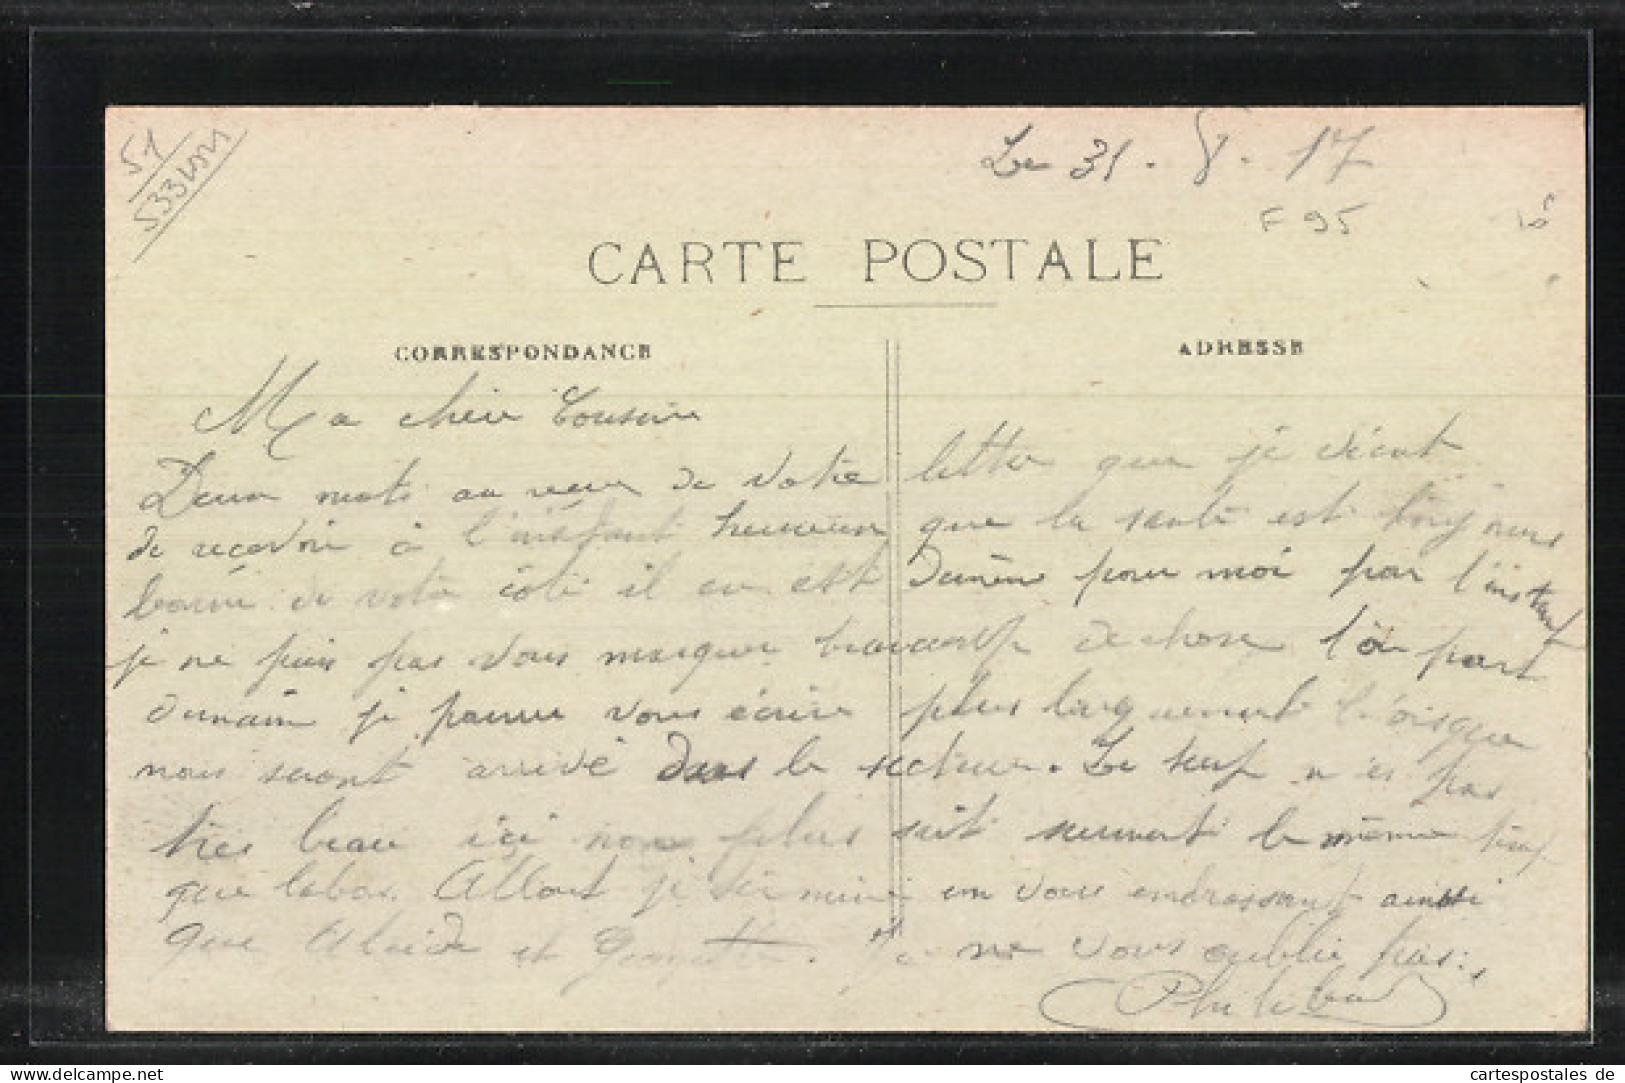 51
Le 31. 8. 17
F 95
CARTE POSTALE
CORRESPONDANCE
ADRESSE
Ma chère Cousine
Deux mots au reçu de votre lettre que je vient
de recevoir à l'instant heureux que la santé est toujours
bonne de votre côté il en est de même pour moi par l'instant
je ne puis pas vous marquer beaucoup de chose l'on part
demain je pourrai vous écrire plus largement lorsque
nous seront arrivé dans le secteur. Le temp n'es pas
très beau ici non plus le même temp
que labas. Allont je termine en vous embrassant ainsi
que Alcide et Georgette. Je ne vous oublie pas.
Philibert
cartespostales de